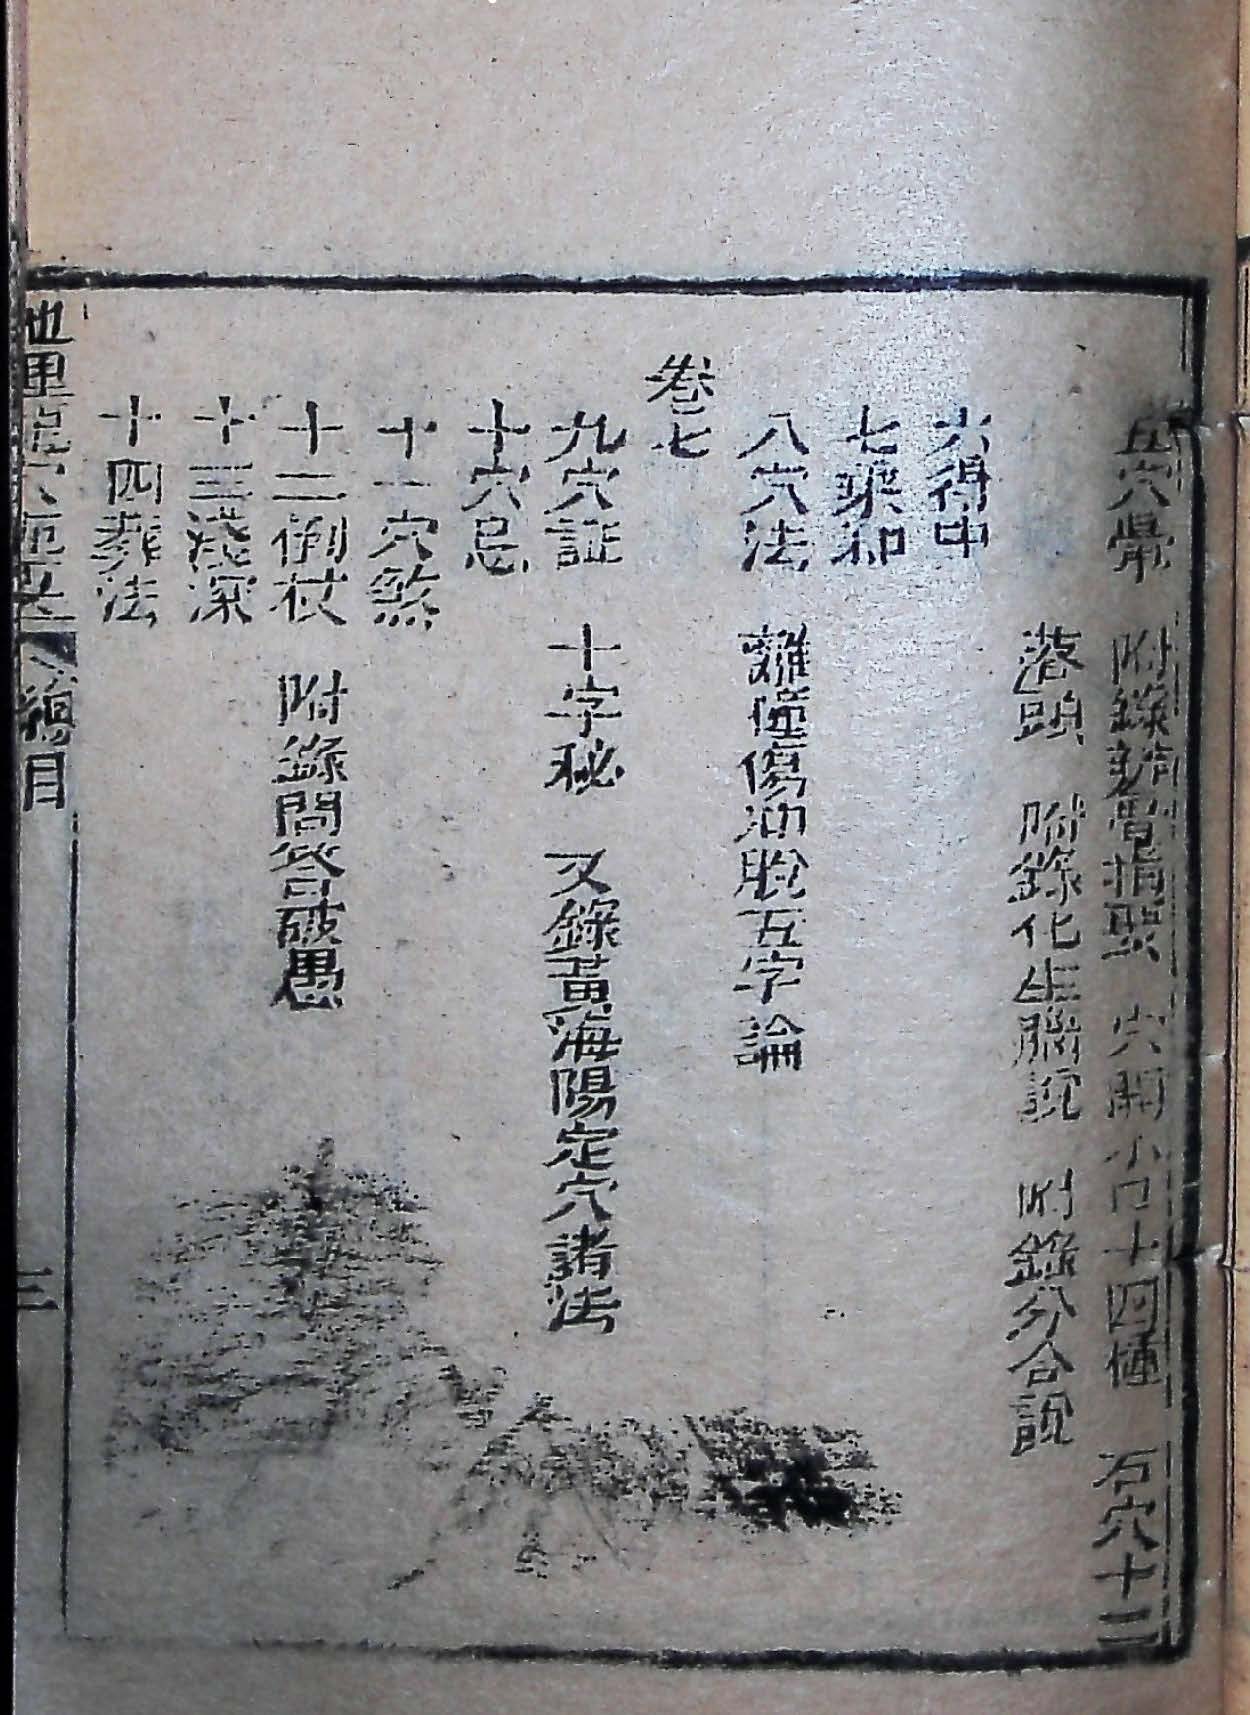 五穴暈 附錄 指 穴開小口十四種 石穴十二
落頭 附錄化生腦說 附錄分合說
六得中
七乘和
八穴法 離 傷 脫五字論
卷七
九穴証 十字秘 又錄黃海陽定穴諸法
十穴忌
十一穴煞
十二倒杖 附錄問答破愚
十三淺深
十四葬法
地理 穴 總目 三